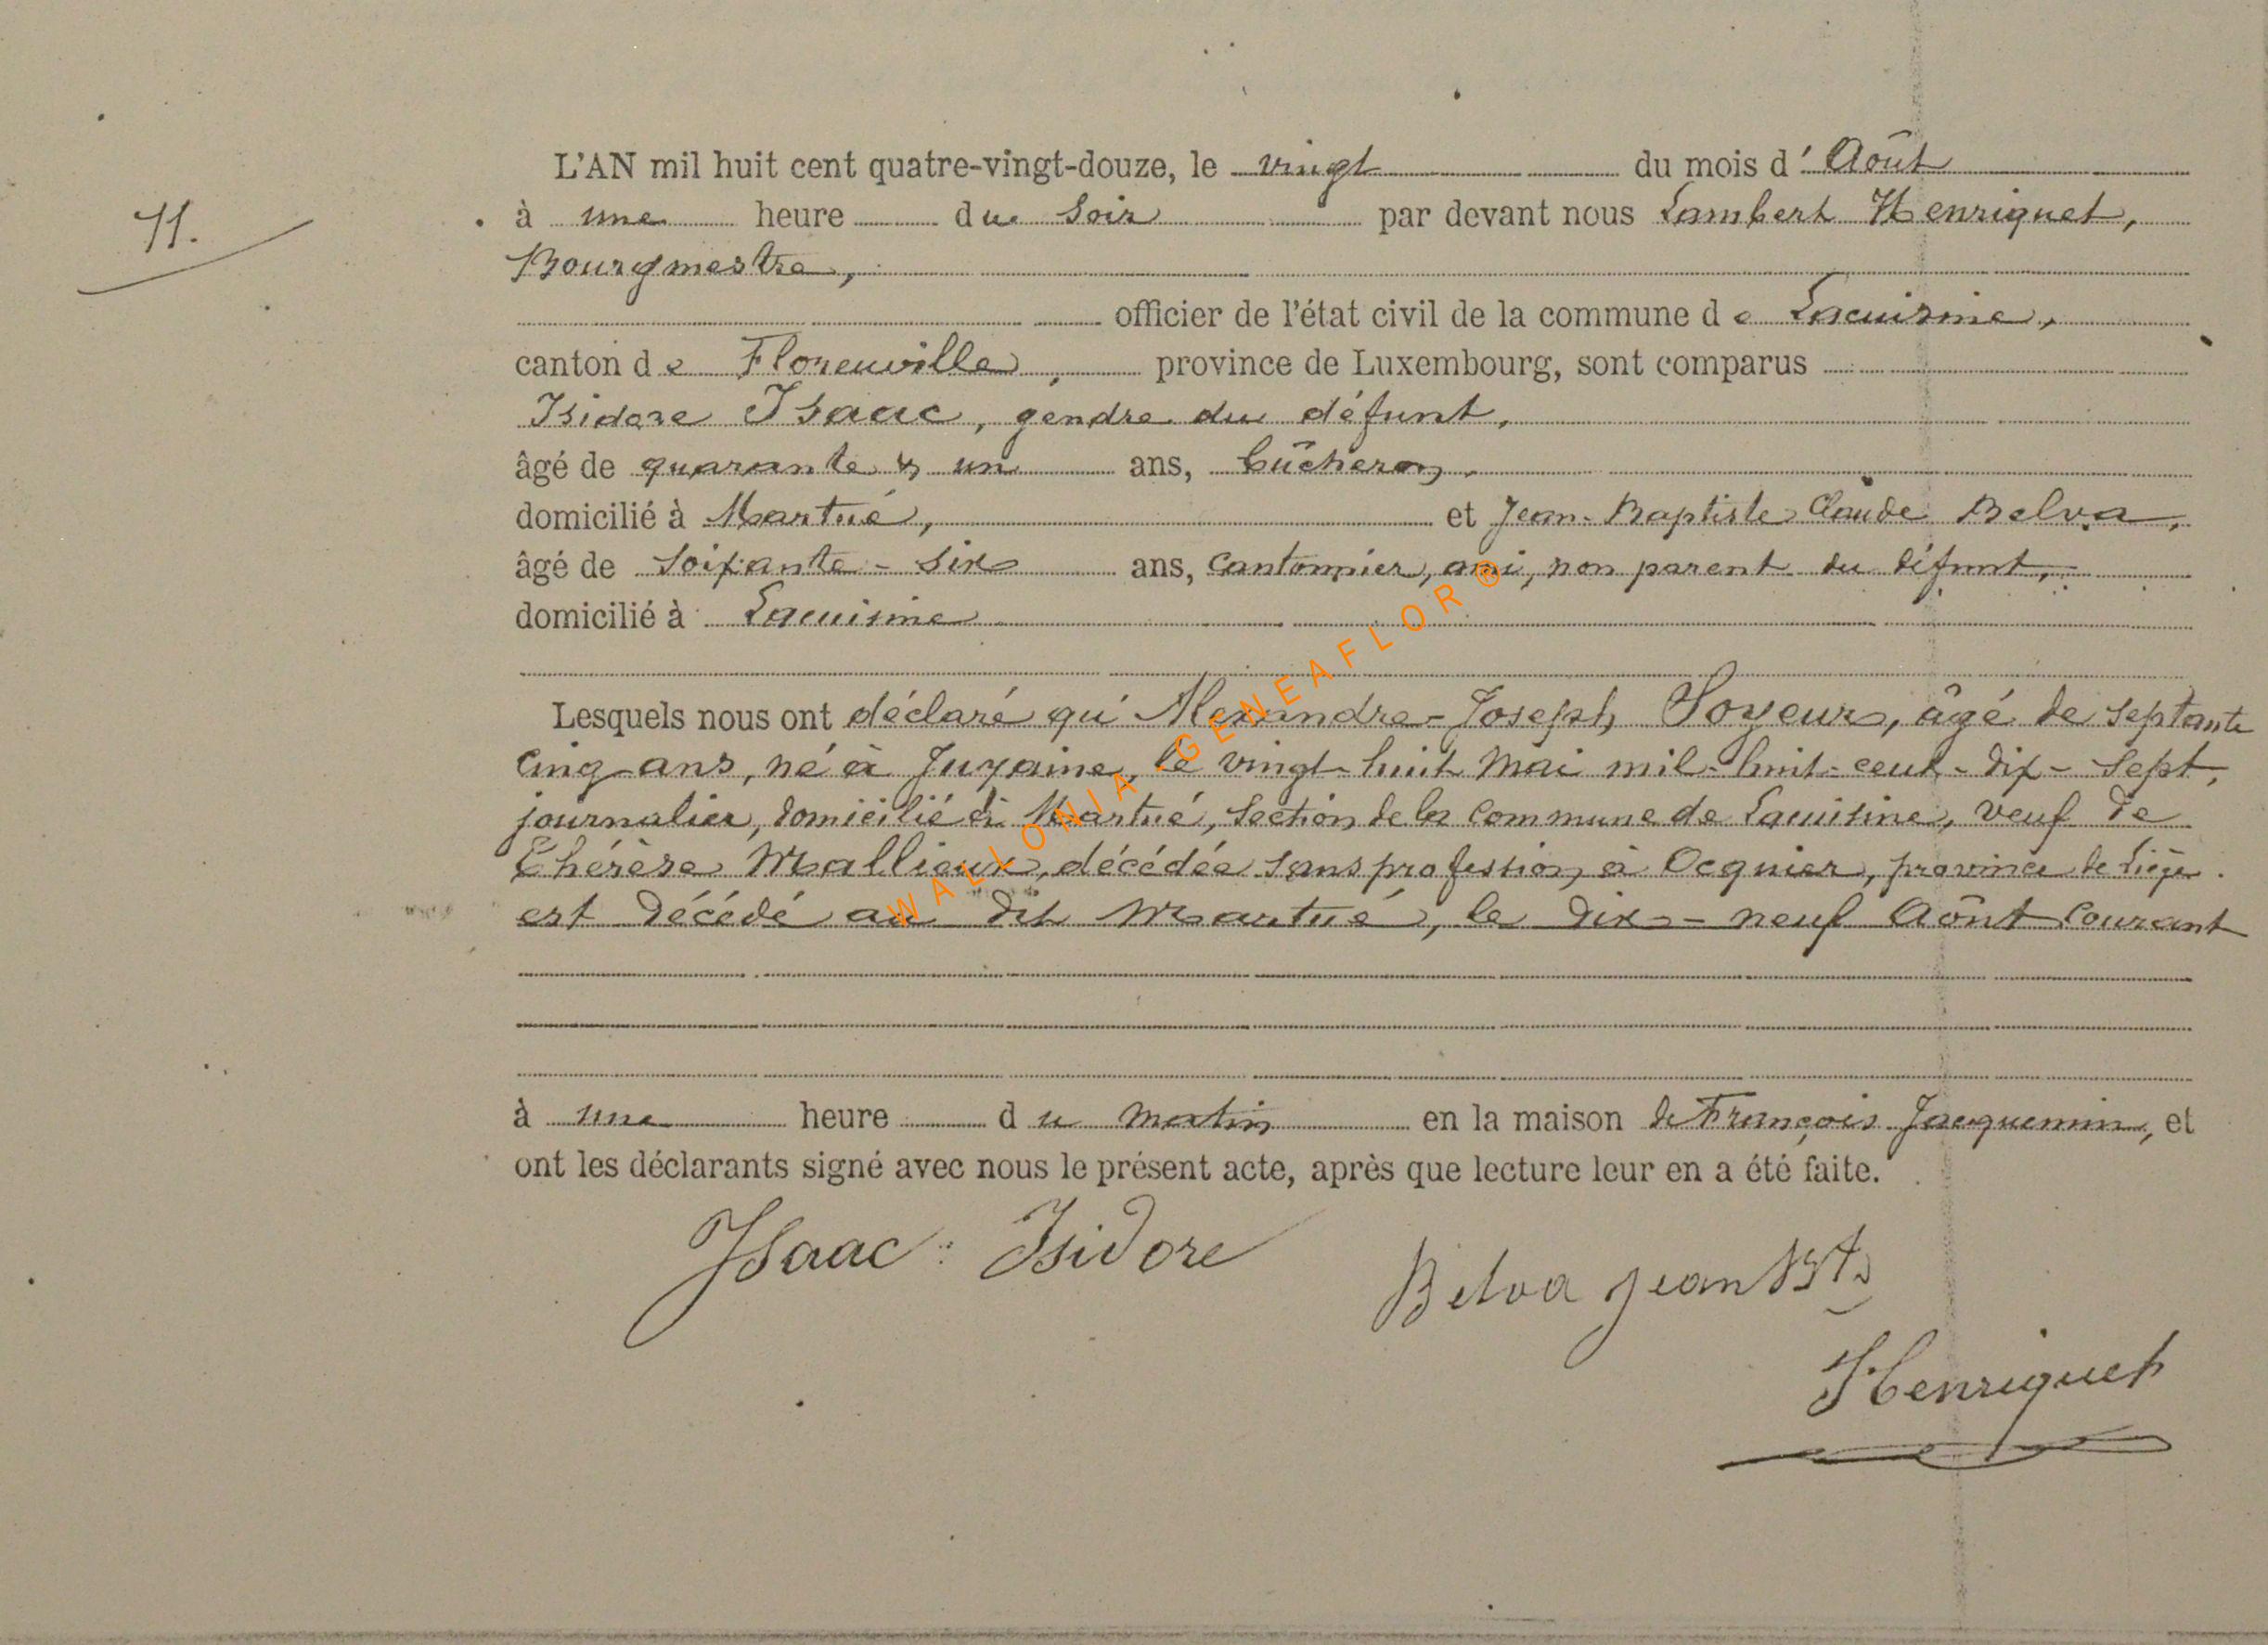 11.
L'AN mil huit cent quatre-vingt-douze, le vingt du mois d'Août
à une heure du soir par devant nous Lambert Henriquet,
Bourgmestre,
officier de l'état civil de la commune de Lacuisine,
canton de Florenville, province de Luxembourg, sont comparus
Isidore Isaac, gendre du défunt,
âgé de quarante & un ans, bûcheron,
domicilié à Martué, et Jean-Baptiste Claude Belva,
âgé de Soixante-six ans, Cantonnier, ami, non parent du défunt,
domicilié à Lacuisine
Lesquels nous ont déclaré qu'Alexandre-Joseph Soyeur, âgé de septante
cinq ans, né à Juzaine, le vingt-huit Mai mil-huit-cent-dix-Sept,
journalier, domicilié à Martué, Section de la Commune de Lacuisine, veuf de
Thérèse Mallieux, décédée sans profession, à Ocquier, province de Liège.
est décédé au dit Martué, le dix-neuf Août Courant
à une heure du matin en la maison de François Jacquemin, et
ont les déclarants signé avec nous le présent acte, après que lecture leur en a été faite.
Isaac Isidore
Belva jean Bte
Henriquet
WALLONIA GENEAFLOR ®